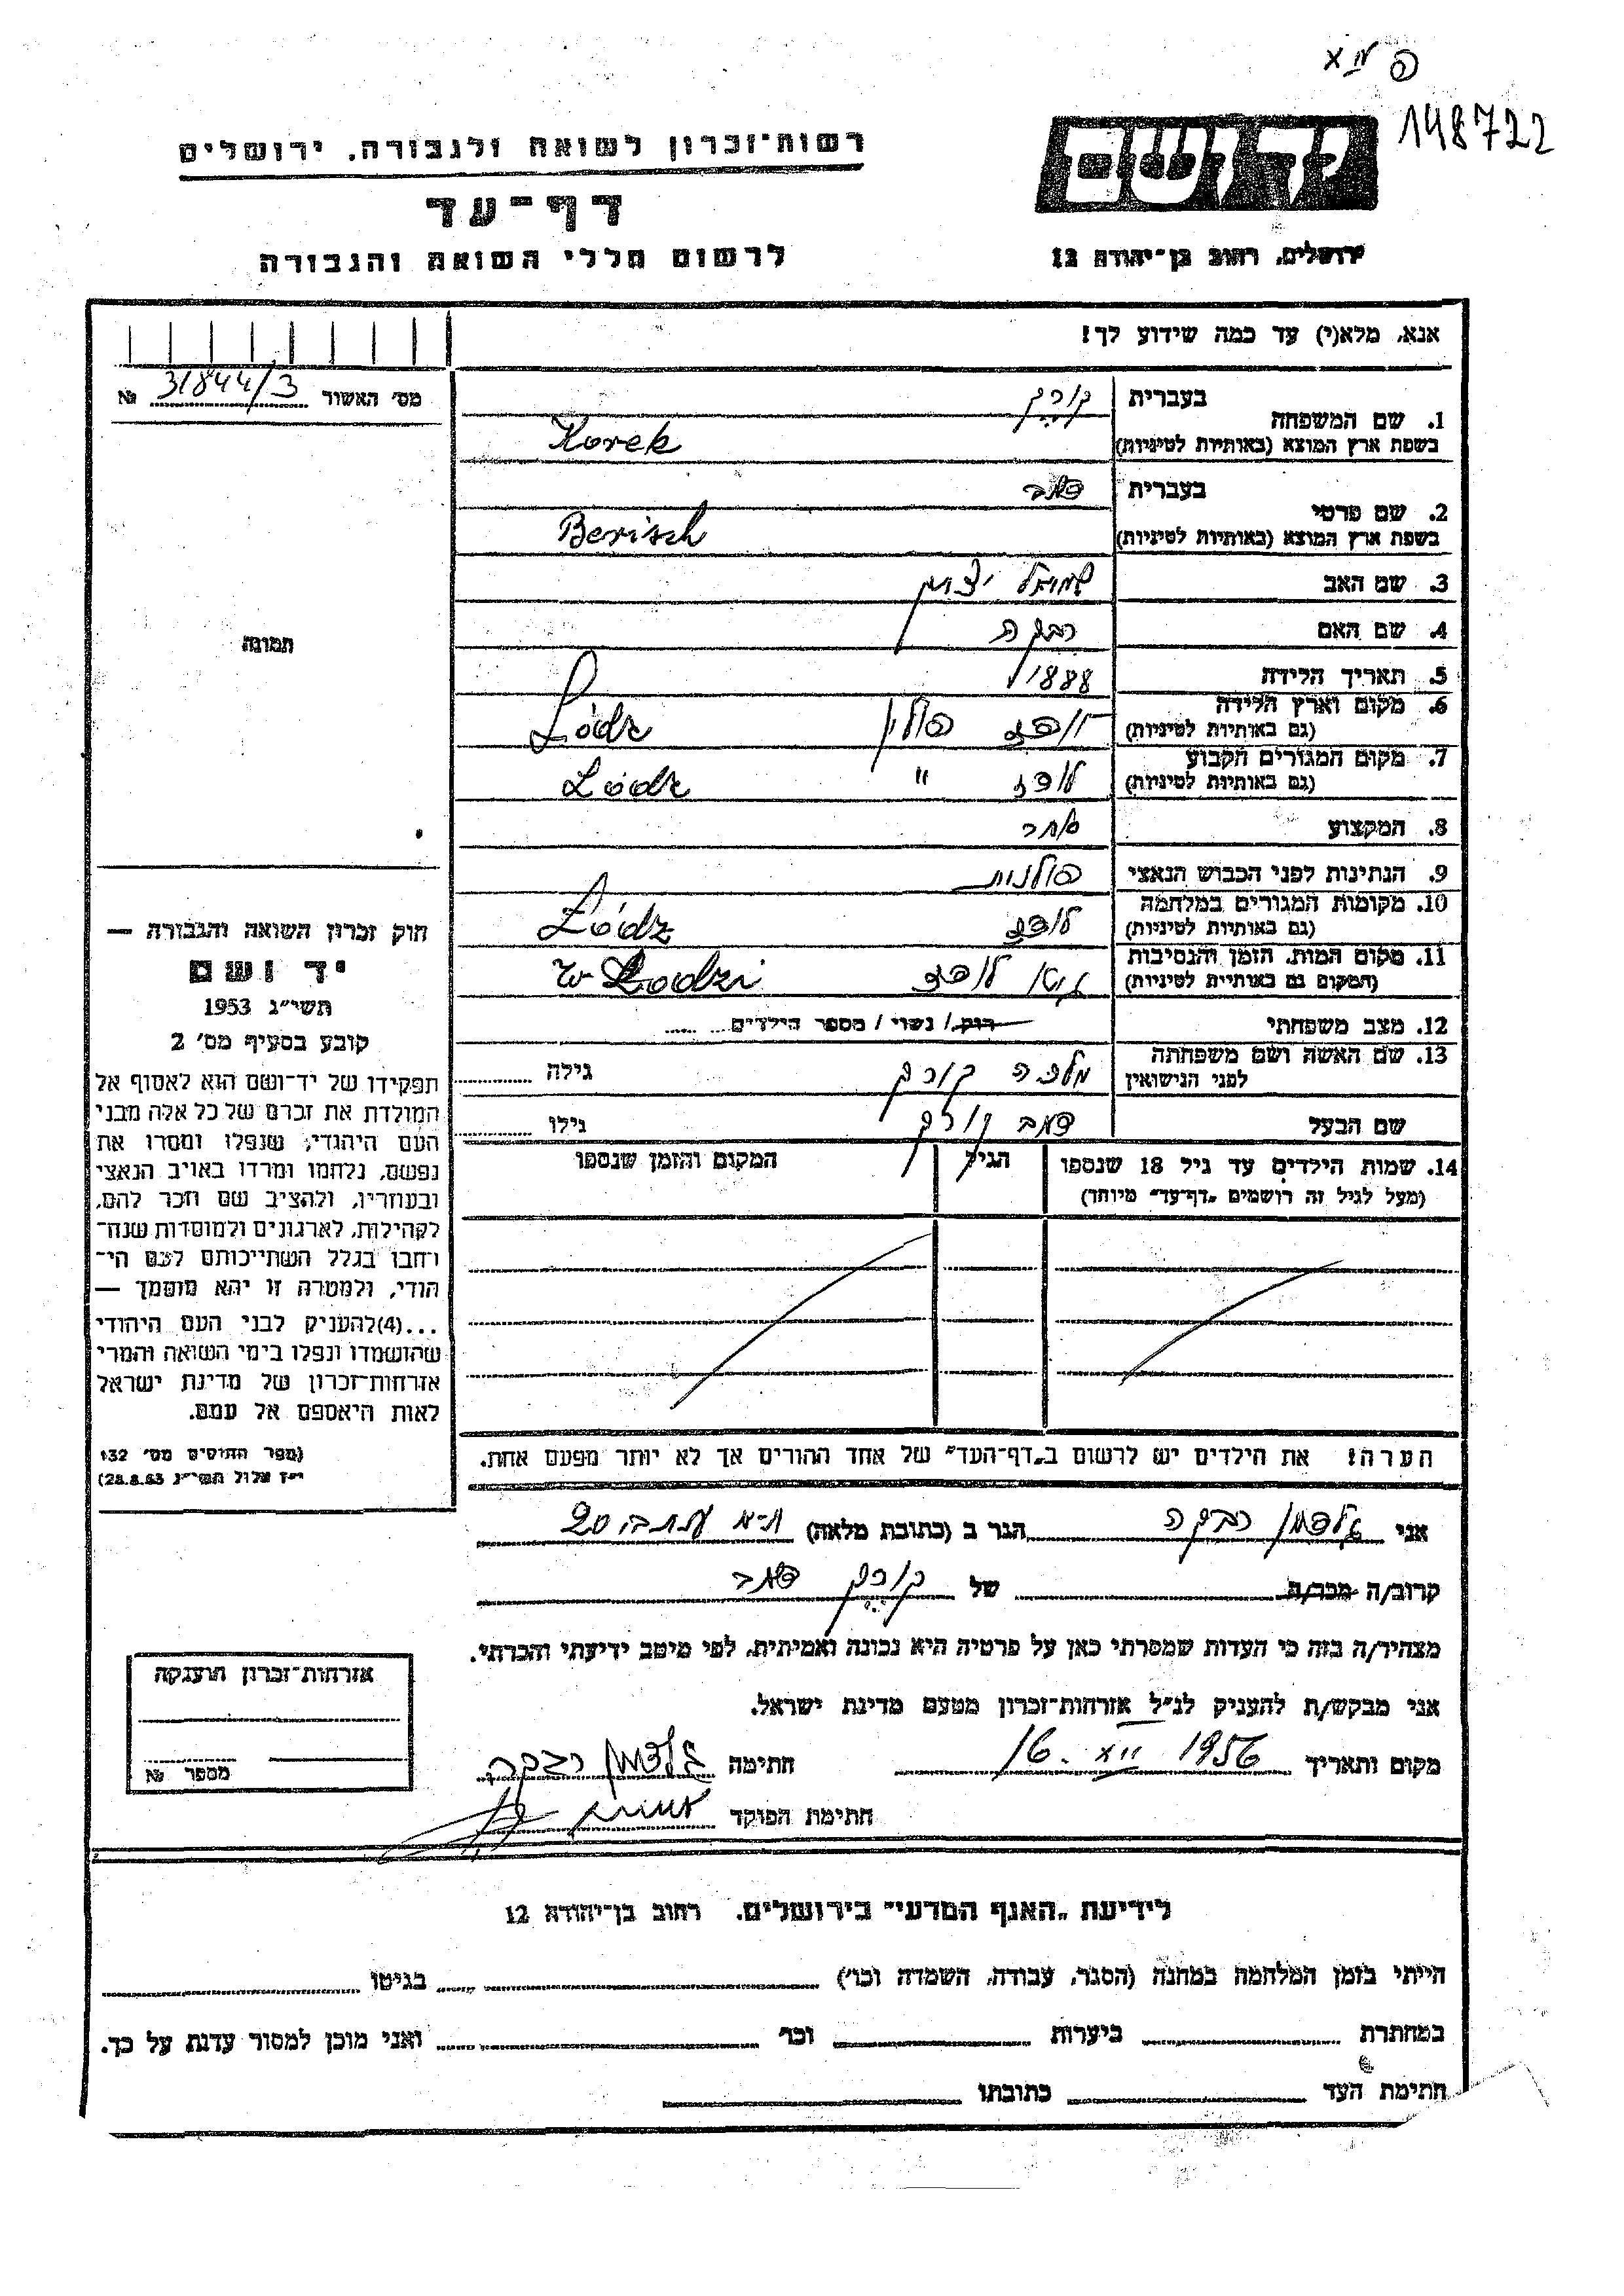 148722
רשות-זכרון לשואה ולגבורה, ירושלים
דף-עד
לרשום חללי השואה והגבורה
יד ושם
ירושלים, רחוב בן-יהודה 12
אנא, מלא(י) עד כמה שידוע לך!
מס' האשור 31844/3 №
1. שם המשפחה
בעברית קורק
בשפת ארץ המוצא (באותיות לטיניות) Korek
2. שם פרטי
בעברית
בשפת ארץ המוצא (באותיות לטיניות) Berisch
3. שם האב שמואל יצחק
4. שם האם רבקה
5. תאריך הלידה 1888
6. מקום וארץ הלידה
(גם באותיות לטיניות) לודז פולין Łódz
7. מקום המגורים הקבוע
(גם באותיות לטיניות) לודז " Łódz
8. המקצוע סוחר
9. הנתינות לפני הכבוש הנאצי פולנית
10. מקומות המגורים במלחמה
(גם באותיות לטיניות) לודז Łódz
11. מקום המות, הזמן והנסיבות
(המקום גם באותיות לטיניות) גטו לודז w Łodzi
12. מצב משפחתי רוק / נשוי / מספר הילדים
13. שם האשה ושם משפחתה
לפני הנישואין מלכה קורק גילה
שם הבעל קורק גילו
14. שמות הילדים עד גיל 18 שנספו
(מעל לגיל זה רושמים „דף-עד" מיוחד)
הגיל
המקום והזמן שנספו
תמונה
חוק זכרון השואה והגבורה —
יד ושם
תשי"ג 1953
קובע בסעיף מס' 2
תפקידו של יד-ושם הוא לאסוף אל
המולדת את זכרם של כל אלה מבני
העם היהודי, שנפלו ומסרו את
נפשם, נלחמו ומרדו באויב הנאצי
ובעוזריו, ולהציב שם וזכר להם,
לקהילות, לארגונים ולמוסדות שנח־
רחבו בגלל השתייכותם לעם הי־
הודי, ולמטרה זו יהא מוסמך —
...(4)להעניק לבני העם היהודי
שהושמדו ונפלו בימי השואה והמרי
אזרחות-זכרון של מדינת ישראל
לאות היאספם אל עמם.
(ספר החוקים מס' 132
י"ז אלול תשי"ג 28.8.53)
הערה! את הילדים יש לרשום ב„דף-העד" של אחד ההורים אך לא יותר מפעם אחת.
אני גלדמן רבקה הגר ב (כתובת מלאה) ת-א 20
קרוב/ה מכר/ה של קורק
מצהיר/ה בזה כי העדות שמסרתי כאן על פרטיה היא נכונה ואמיתית, לפי מיטב ידיעתי והכרתי.
אני מבקש/ת להעניק לנ"ל אזרחות-זכרון מטעם מדינת ישראל.
מקום ותאריך 16. XII 1956 חתימה גלדמן רבקה
חתימת הפוקד
אזרחות-זכרון הוענקה
מספר №
לידיעת „האגף המדעי" בירושלים, רחוב בן-יהודה 12
הייתי בזמן המלחמה במחנה (הסגר, עבודה, השמדה וכו') בגיטו
במחתרת ביערות וכו' ואני מוכן למסור עדות על כך.
חתימת העד כתובתו